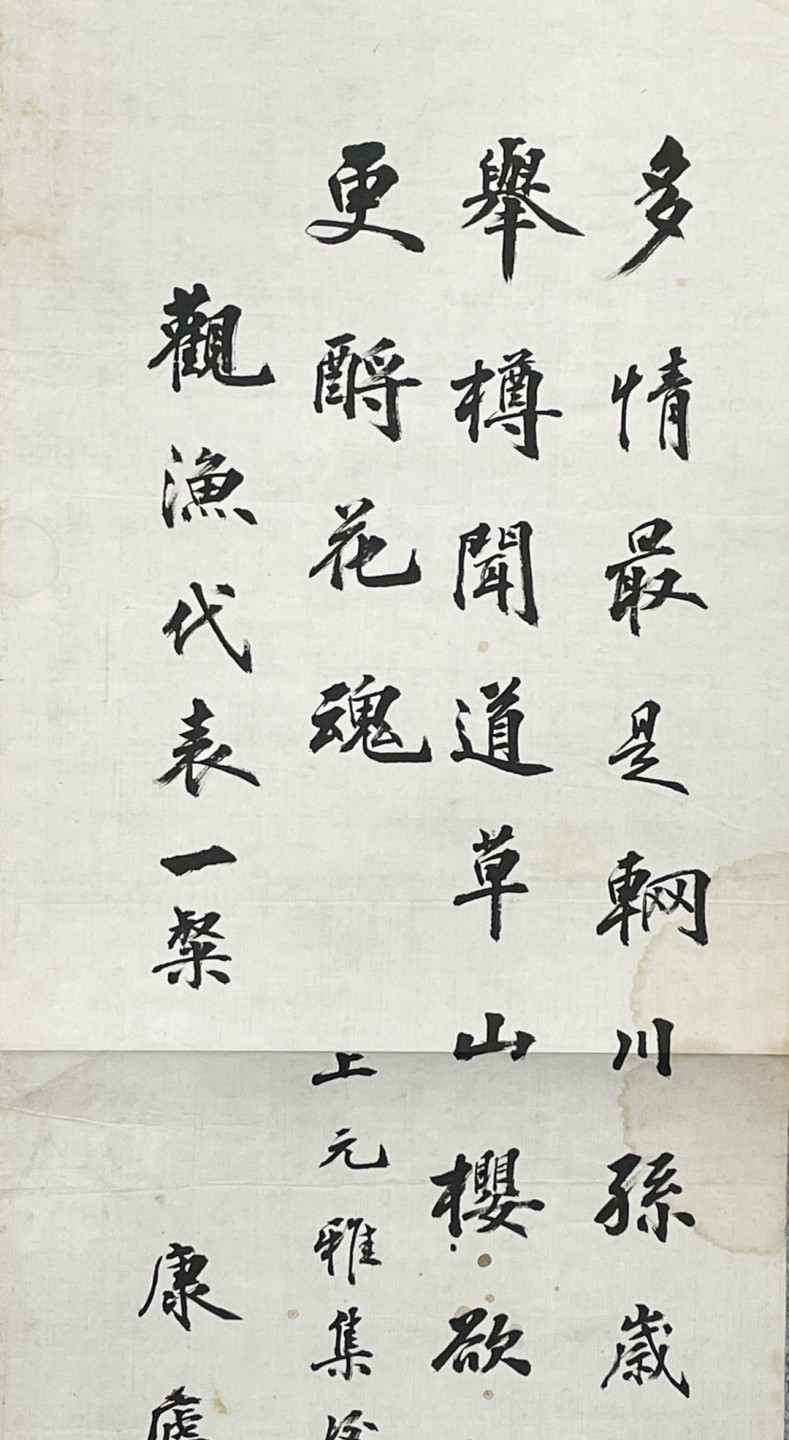 多情最是輞川孫歲
舉樽聞道草山櫻欲
更酹花魂
上元雅集
觀漁代表一粲
康